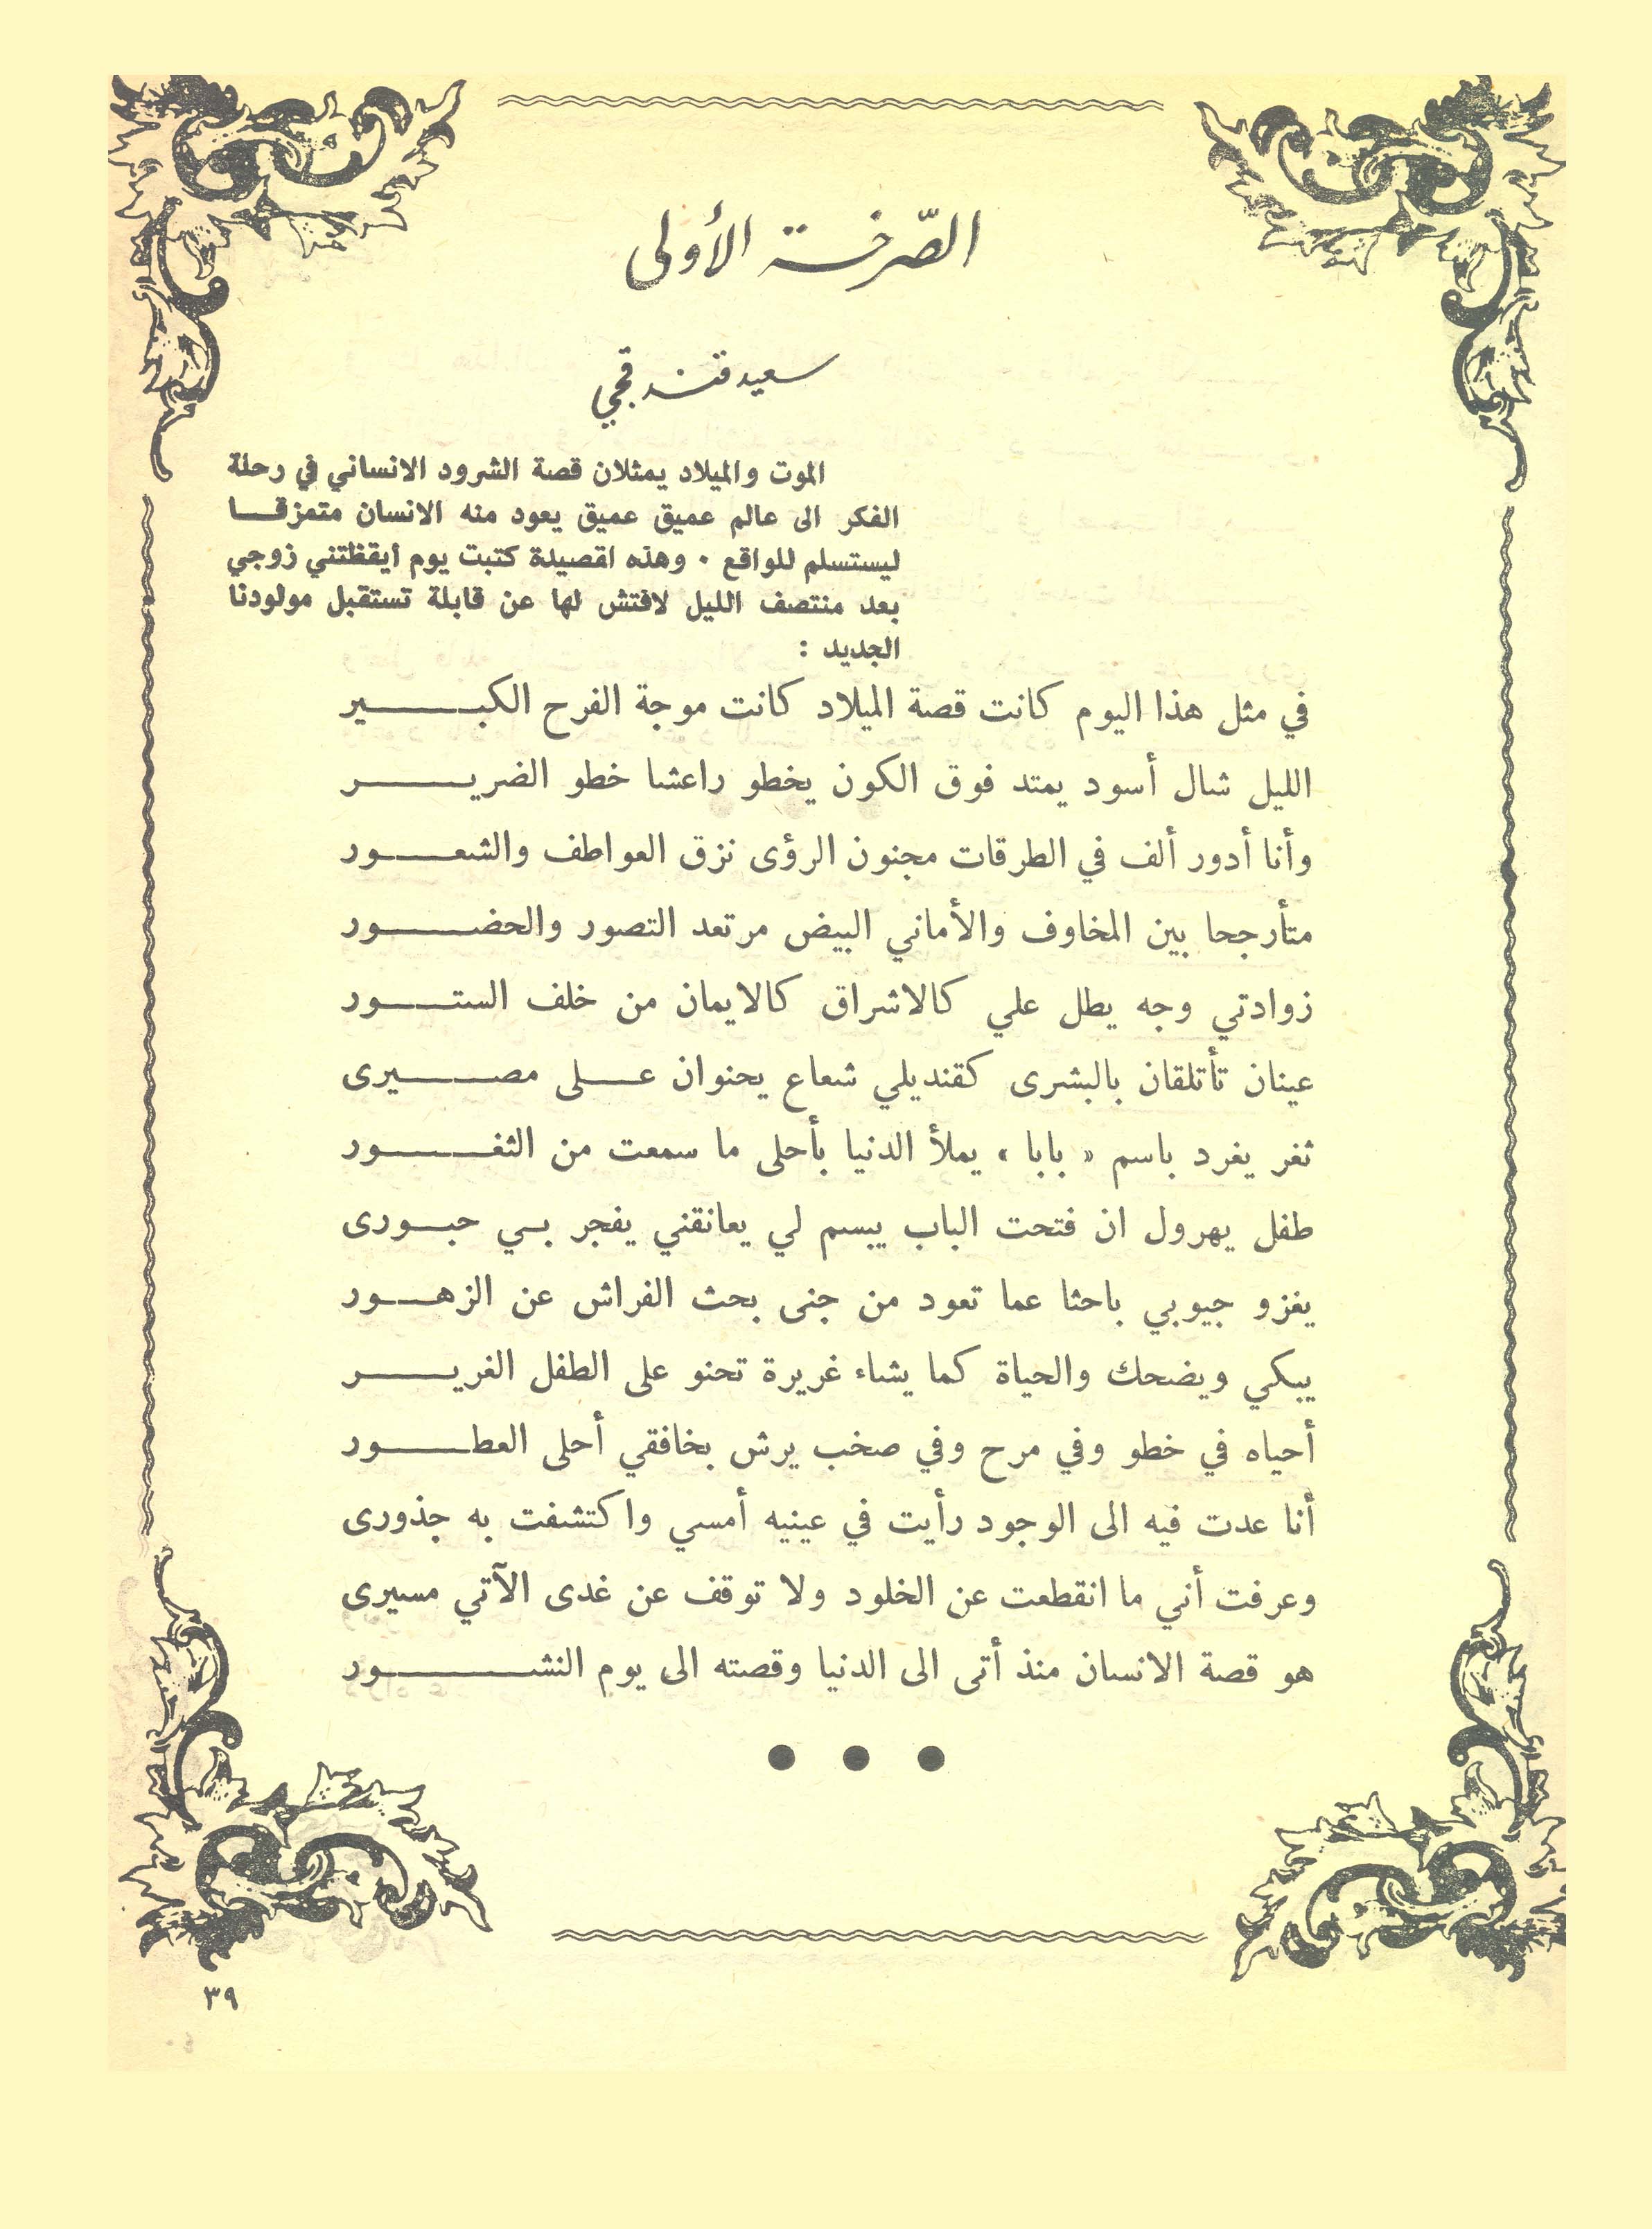 الصّرخة الأولى
سعيد قندقجي
الموت والميلاد يمثلان قصة الشرود الانساني في رحلة
الفكر الى عالم عميق عميق يعود منه الانسان متمزقـــا
ليستسلم للواقع ٠ وهذه اقصيدة كتبت يوم أيقظتني زوجي
بعد منتصف الليل لافتش لها عن قابلة تستقبل مولودنا
الجديد :
في مثل هذا اليوم كانت قصة الميلاد كانت موجة الفرح الكبـــــــير
الليل شال أسود يمتد فوق الكون يخطو راعشا خطو الضريـــــــر
وأنا أدور ألف في الطرقات مجنون الرؤى نزق العواطف والشعـــــور
متأرجحا بين المخاوف والأماني البيض مرتعد التصور والحضـــــــور
زوادتي وجه يطل علي كالاشراق كالايمان من خلف الستـــــور
عينان تأتلقان بالبشرى كقنديلي شعاع يحنوان عـــلى مصـــــيرى
ثغر يغرد باسم « بابا » يملأ الدنيا بأحلى ما سمعت من الثغـــــــور
طفل يهرول ان فتحت الباب يبسم لي يعانقني يفجر بـي حبـــورى
يغزو جيوبي باحثا عما تعود من جنى بحث الفراش عن الزهـــور
يبكي ويضحك والحياة كما يشاء غريرة تحنو على الطفل الغريـــــــر
أحياه في خطو وفي مرح وفي صخب يرش بخافقي أحلى العطـــــــور
أنا عدت فيه الى الوجود رأيت في عينيه أمسي واكتشفت به جذورى
وعرفت أني ما انقطعت عن الخلود ولا توقف عن غدى الآتي مسيرى
هو قصة الانسان منذ أتى الى الدنيا وقصته الى يوم النشـــــــــــور
● ● ●
٣٩